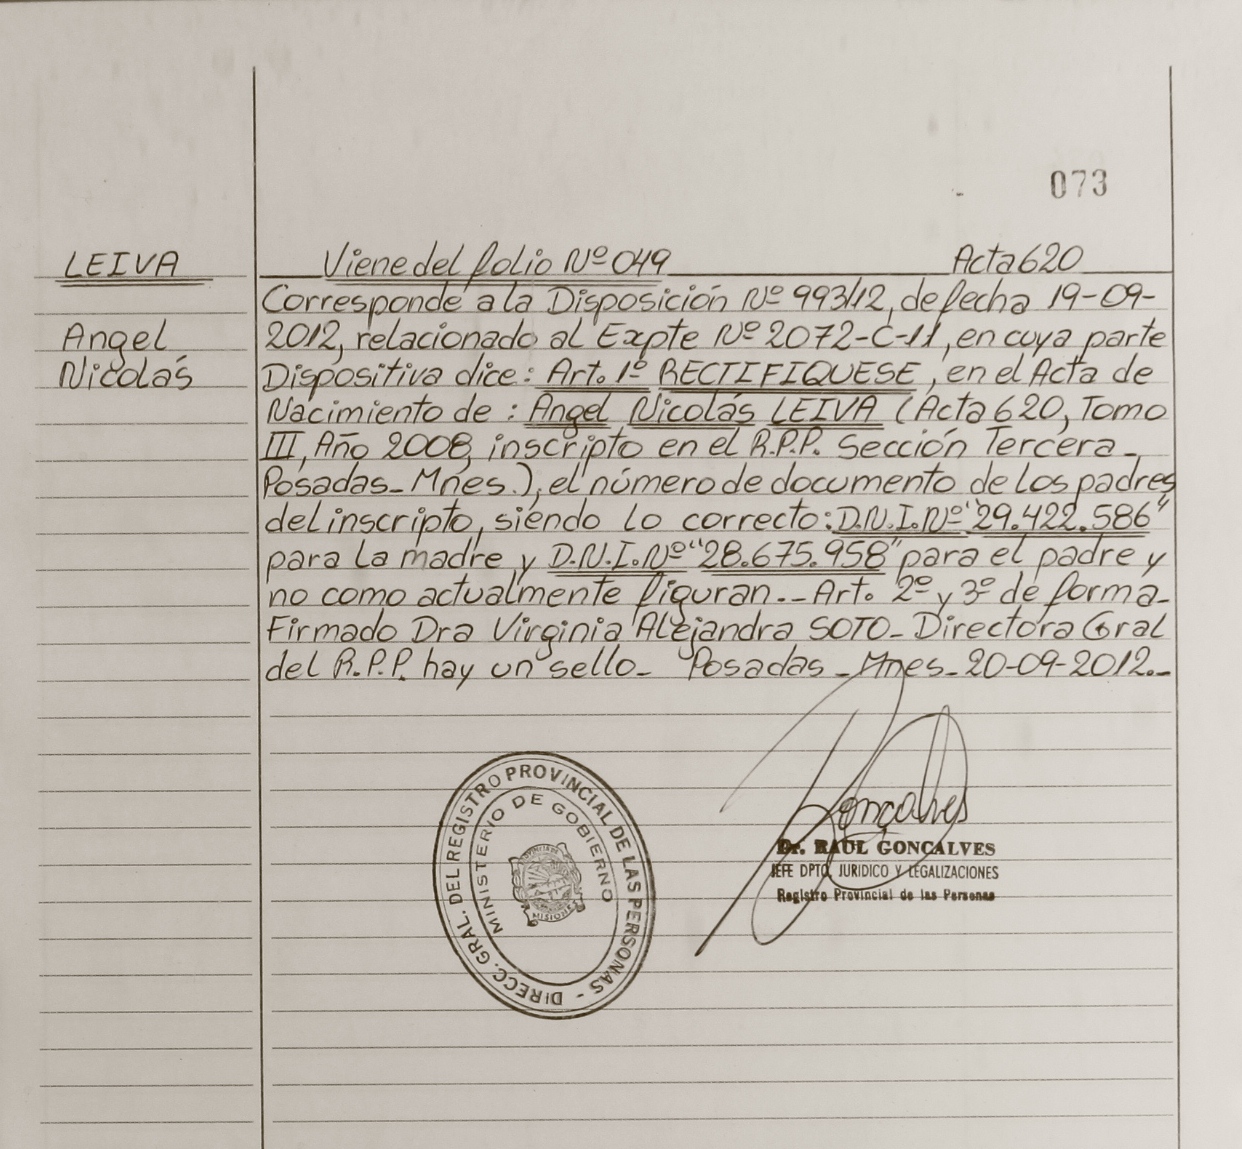 073
LEIVA
Angel
Nicolás
Viene del folio Nº 049 Acta 620
Corresponde a la Disposición Nº 993/12, de fecha 19-09-
2012, relacionado al Expte Nº 2072-C-11, en cuya parte
Dispositiva dice: Art. 1º RECTIFIQUESE, en el Acta de
Nacimiento de: Angel Nicolás LEIVA (Acta 620, Tomo
III, Año 2008, inscripto en el R.P.P. Sección Tercera_
Posadas_Mnes.), el número de documento de los padres
del inscripto, siendo lo correcto: D.N.I. Nº "29.422.586"
para la madre y D.N.I. Nº "28.675.958" para el padre y
no como actualmente figuran.__ Art. 2º y 3º de forma_
Firmado Dra Virginia Alejandra SOTO_Directora Gral
del R.P.P. hay un sello_ Posadas_Mnes_20-09-2012._
DIRECC. GRAL. DEL REGISTRO PROVINCIAL DE LAS PERSONAS -
MINISTERIO DE GOBIERNO
MISIONES
Gonçalves
Dr. RAUL GONCALVES
JEFE DPTO. JURIDICO Y LEGALIZACIONES
Registro Provincial de las Personas